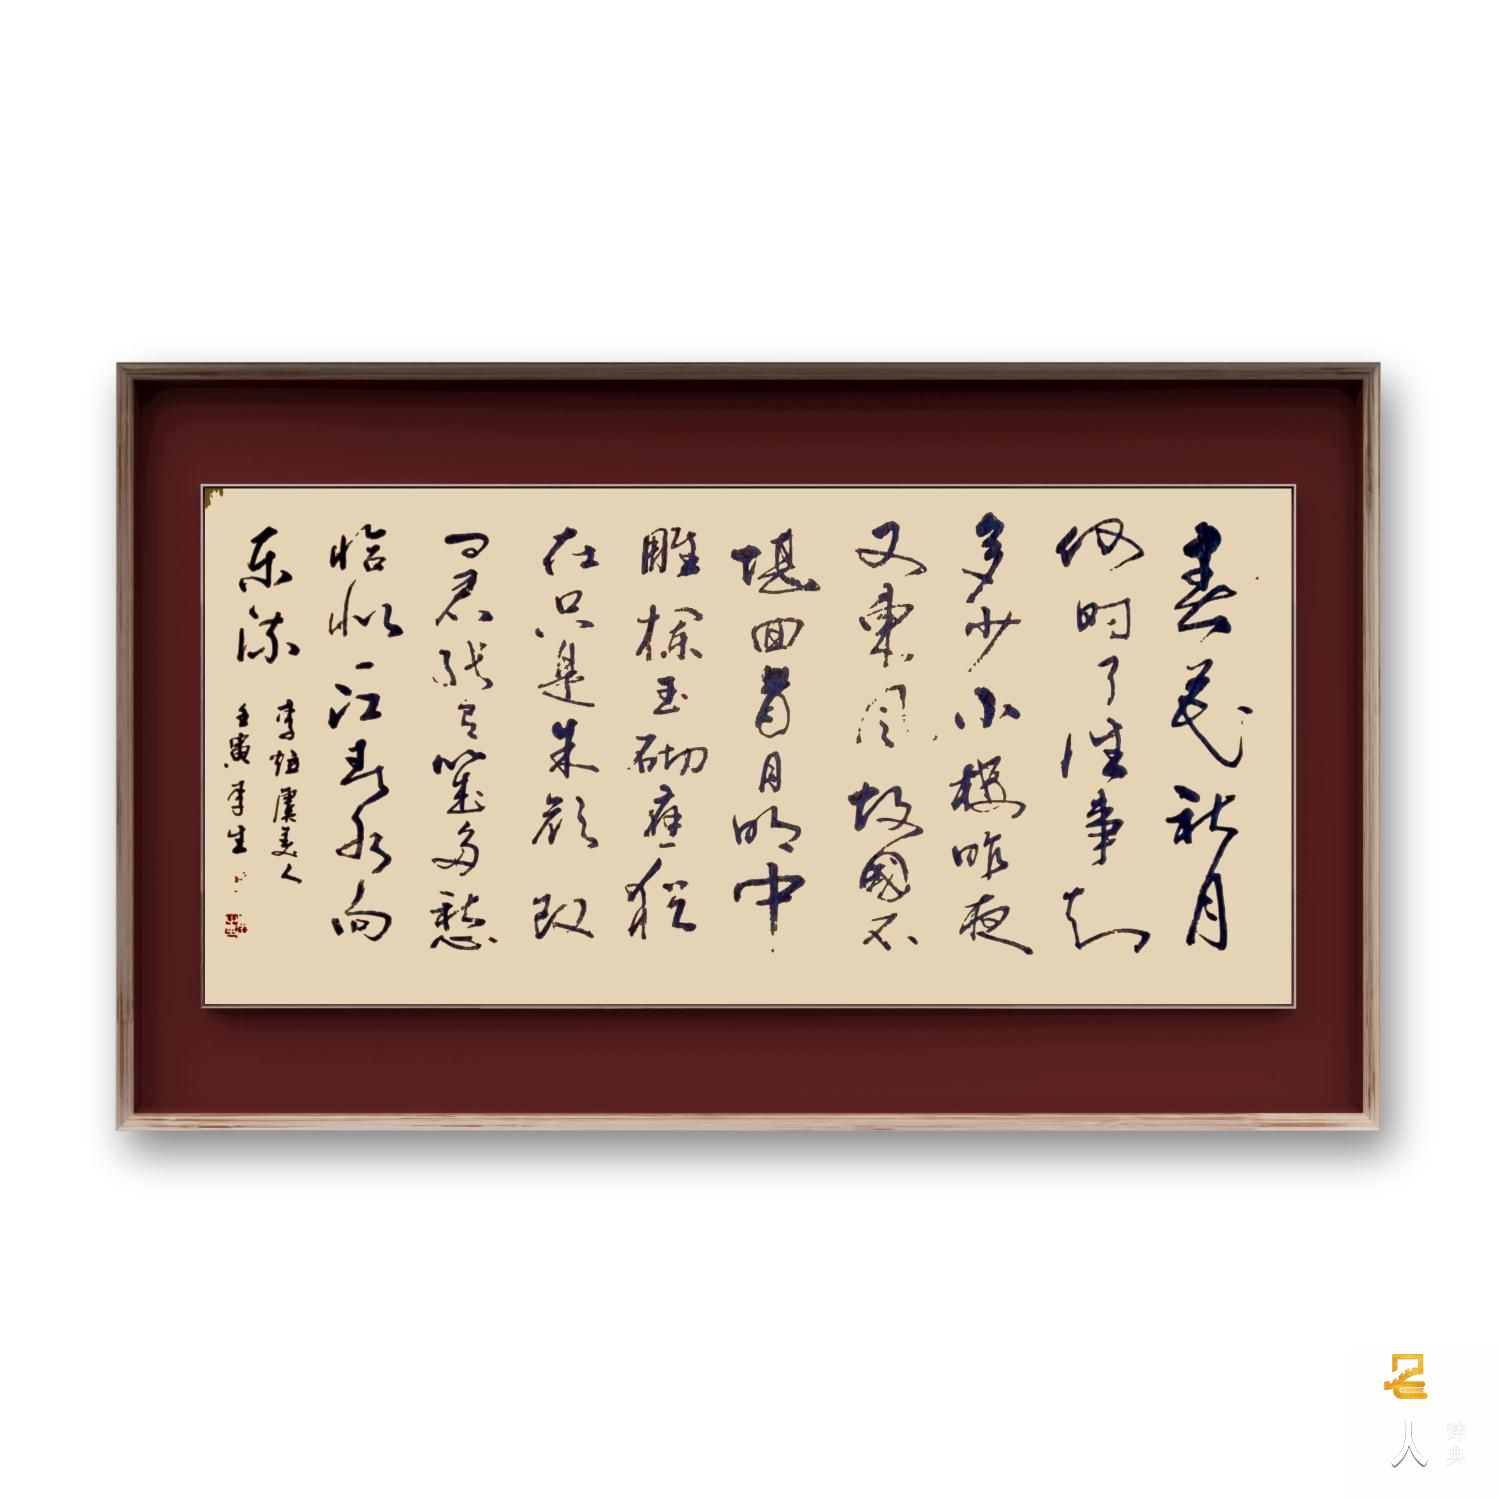 春花秋月
何时了往事知
多少小楼昨夜
又東风故國不
堪回首月明中
雕栏玉砌应犹
在只是朱颜改
问君能有幾多愁
恰似一江春水向
东流
李煜虞美人
壬寅李生
名人
辞典